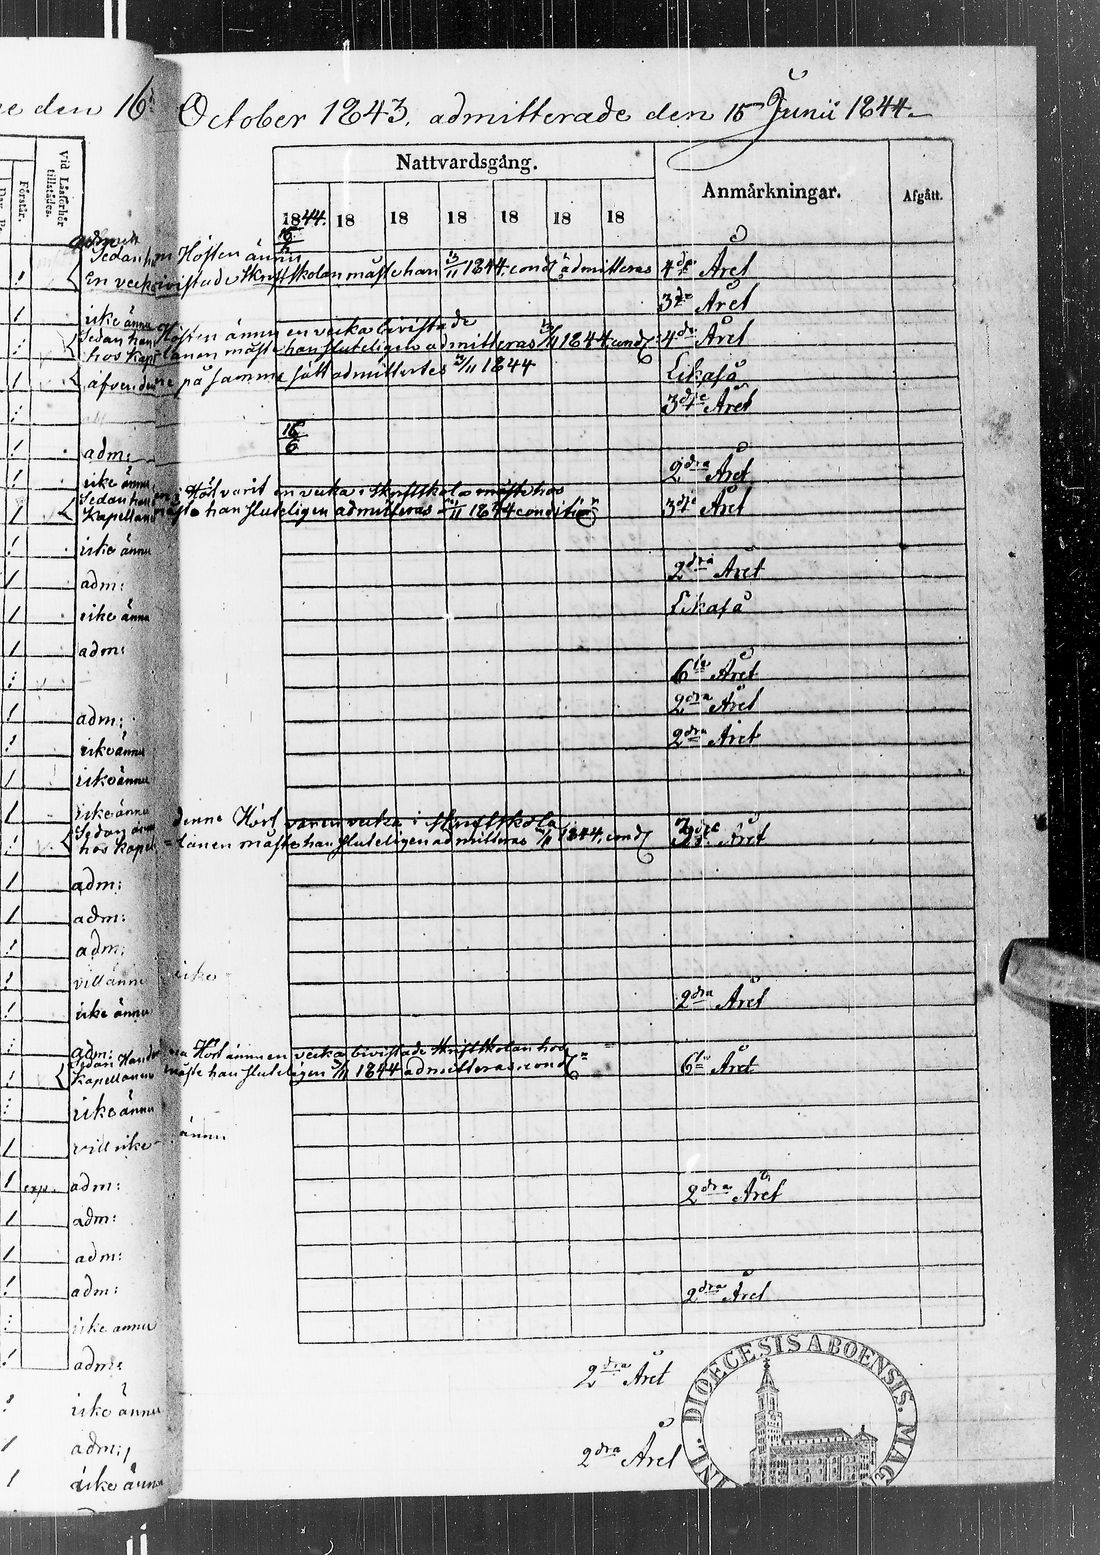 den 16 October 1843. admitterade den 15 Junii 1844.
Förstår.
vid Läsförhör tillstädes.
Nattvardsgång.
Anmärkningar.
Afgått.
1844. 18 18 18 18 18 18
15/6
Sedan han Hösten ännu
En vecka bivistade Skriftskolan måste han 1844 cond. admitteras 4de Året
icke ännu 3dje Året
Sedan han Hösten ännu en vecka bivistade
hos Kapellanen måste han sluteligen admitteras 1844 cond. 4de Året
äfven denne på samma sätt admittertes 1844 Likaså
3dje Året
adm: 15/6
icke ännu 2dra Året
Sedan han i Höst varit en vecka i Skriftskola måste hos
Kapellanen måste han sluteligen admitteras 1844 condition 3dje Året
icke ännu
adm: 2dra Året
icke ännu Likaså
adm:
6te Året
adm: 2dra Året
icke ännu 2dra Året
icke ännu
icke ännu
Sedan denne Höst varit en vecka i Skriftskola
hos Kapellanen måste han sluteligen admitteras 1844, cond. Året
adm:
adm:
adm:
vill ännu icke
icke ännu 2dra Året
adm:
Höst ännu en vecka bivistade Skriftskolan hos
Kapellanen måste han sluteligen 1844 admitteras cond. 6te Året
icke ännu
vill icke ännu
exp. adm: 2dra Året
adm:
adm:
adm: 2dra Året
icke ännu
adm: 2dra Året
icke ännu
adm: 2dra Året
icke ännu
DIOECESIS ABOENSIS. MAG